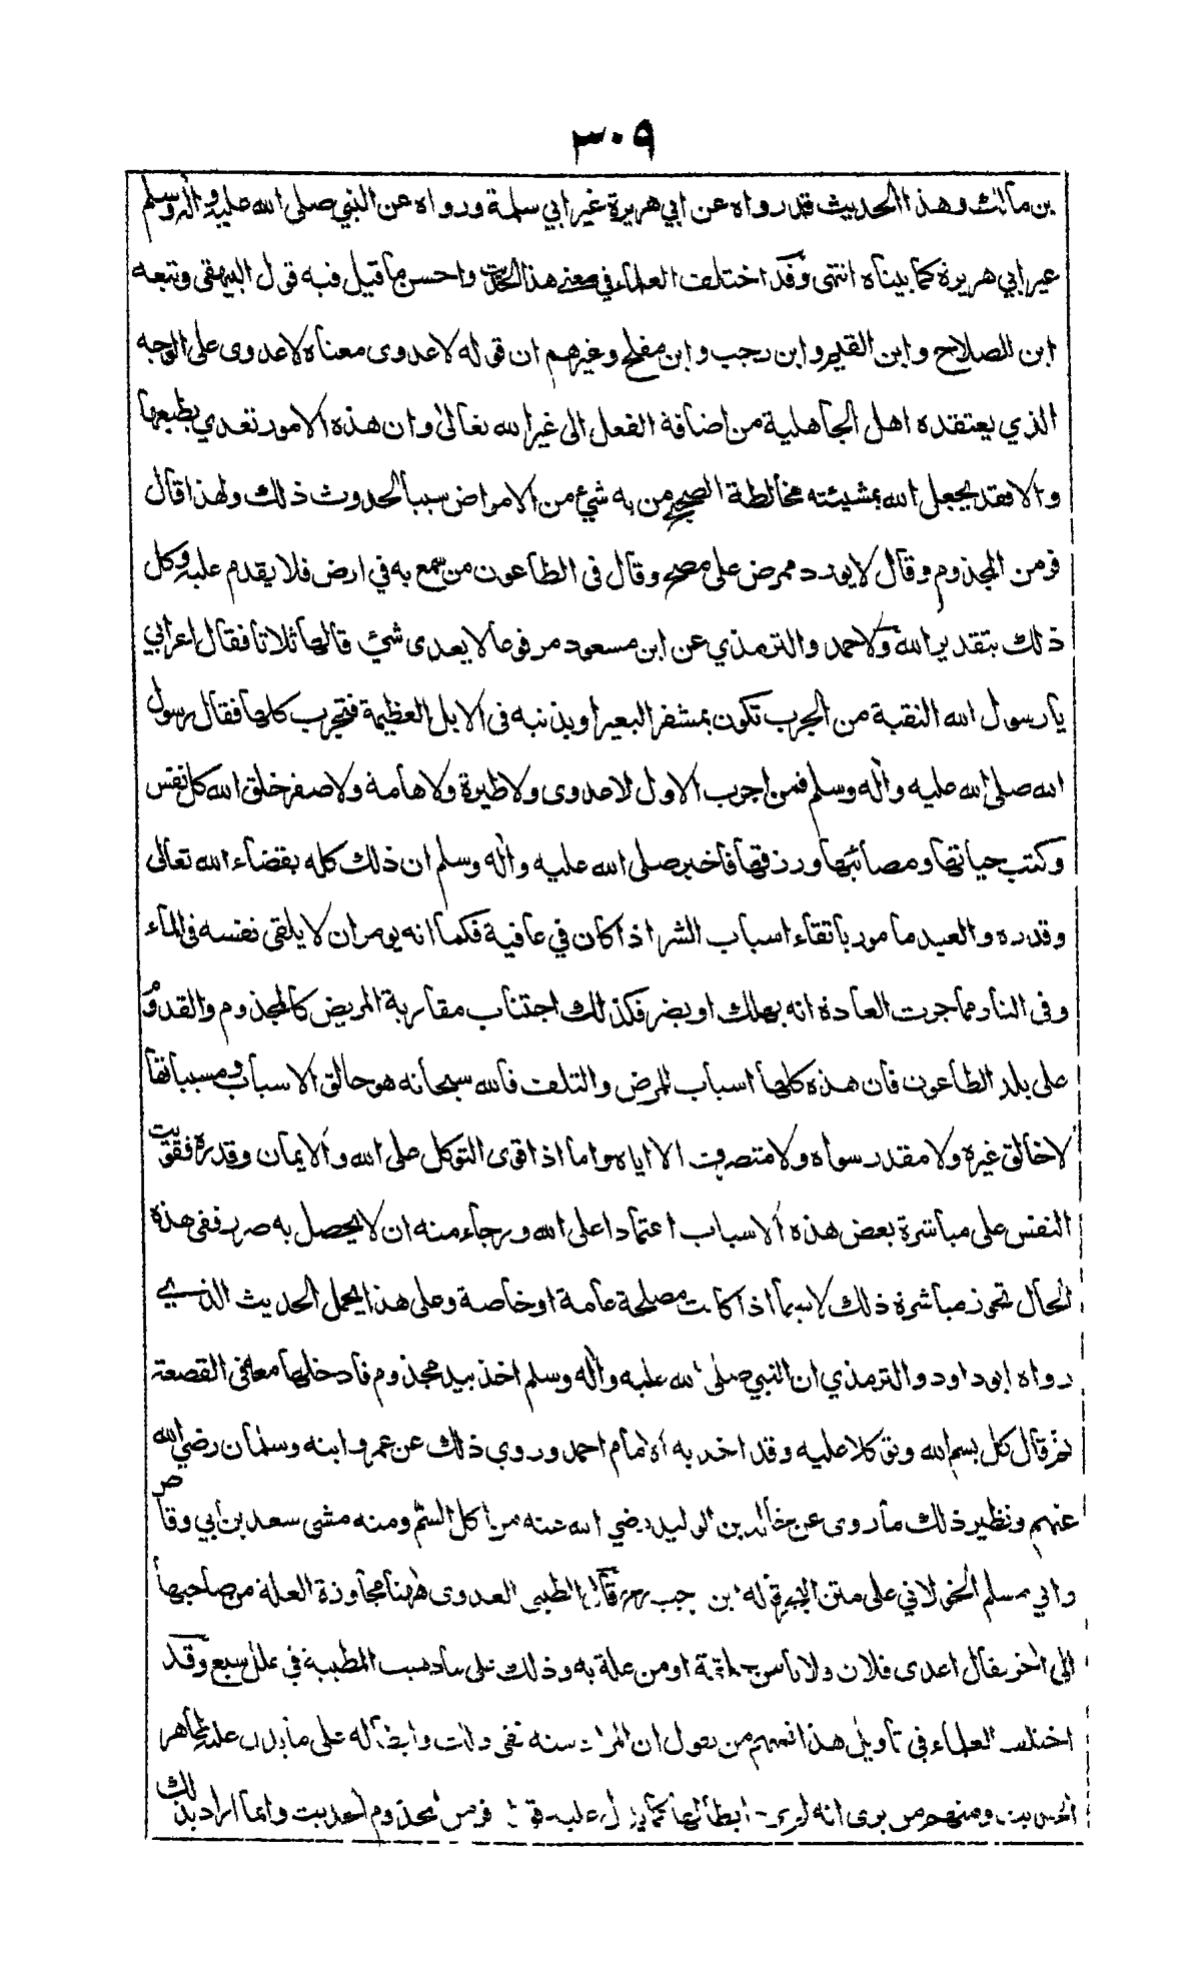 ٣٠٩
بن مالك وهذا الحديث قد رواه عن ابي هريرة غير ابي سلمة ورواه عن النبي صلى الله عليه واله وسلم
غير ابي هريرة كما بيناه انتهى وقد اختلف العلماء في معنے هذا الحديث واحسن ما قيل فيه قول البيهقى وتبعه
ابن الصلاح وابن القيم وابن رجب وابن مفلح وغيرهم ان قوله لا عدوى معناه لا عدوى على الوجه
الذي يعتقده اهل الجاهلية من اضافة الفعل الى غير الله تعالى وان هذه الامور تعدي بطبعها
والا فقد يجعل الله بمشيئته مخالطة الصحيح من به شئ من الامراض سببا لحدوث ذلك ولهذا قال
فر من المجذوم وقال لا يورد ممرض على مصح وقال فى الطاعون من سمع به في ارض فلا يقدم عليه وكل
ذلك بتقدير الله ولاحمد والترمذي عن ابن مسعود مرفوعا لا يعدى شئ قالها ثلاثا فقال اعرابي
يا رسول الله النقبة من الجرب تكون بمشفر البعير او بذنبه فى الابل العظيمة فتجرب كلها فقال رسول
الله صلى الله عليه واله وسلم فمن اجرب الاول لا عدوى ولا طيرة ولا هامة ولا صفر خلق الله كل نفس
وكتب حياتها ومصائبها ورزقها فاخبر صلى الله عليه واله وسلم ان ذلك كله بقضاء الله تعالى
وقدره والعبد مامور باتقاء اسباب الشر اذا كان في عافية فكما انه يومر ان لا يلقى نفسه فى الماء
وفى النار مما جرت العادة انه يهلك او يضر فكذلك اجتناب مقاربة المريض كالمجذوم والقدوم
على بلد الطاعون فان هذه كلها اسباب للمرض والتلف فالله سبحانه هو خالق الاسباب ومسبباتها
لا خالق غيره ولا مقدر سواه ولا متصرف الا اياه واما اذا قوى التوكل على الله والايمان وقدره فقويت
النفس على مباشرة بعض هذه الاسباب اعتمادا على الله ورجاء منه ان لا يحصل به ضرر ففى هذه
الحال تجوز مباشرة ذلك لا سيما اذا كانت مصلحة عامة او خاصة وعلى هذا يحمل الحديث الذي
رواه ابو داود والترمذي ان النبي صلى الله عليه واله وسلم اخذ بيد مجذوم فادخلها معه فى القصعة
ثم قال كل بسم الله وتوكلا عليه وقد اخذ به الامام احمد وروي ذلك عن عمر وابنه وسلمان رضي الله
عنهم ونظير ذلك ما روى عن خالد بن الوليد رضي الله عنه من اكل السم ومنه مشى سعد بن ابي وقاص
وابي مسلم الخولاني على متن البحر قاله ابن رجب رح قال الطيبى العدوى ههنا مجاوزة العلة من صاحبها
الى اخر يقال اعدى فلان فلانا من او من علة به وذلك على ما ذهب المطببة في علل سبع وقد
اختلف العلماء في تاويل هذا فمنهم من يقول ان المراد منه نفى ذلك وابطاله على ما يدل عليه ظاهر
الحديث ومنهم من يرى انه لم يرد ابطالها كما فر من المجذوم الحديث وانما اراد بذلك